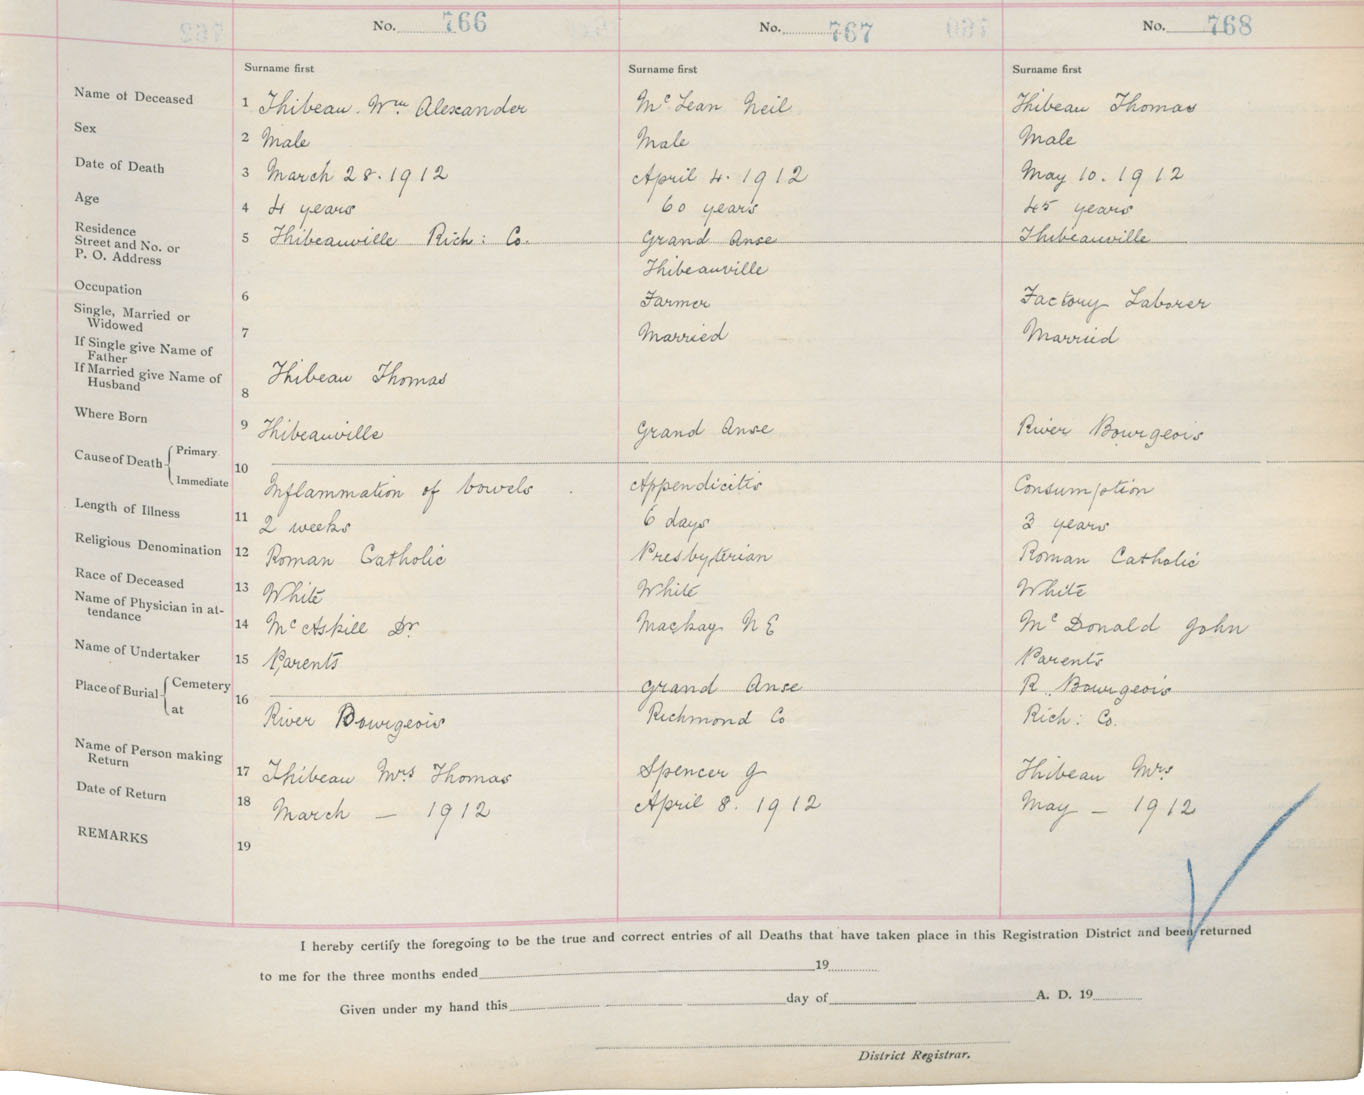 No. 766 No. 767 No. 768
Surname first Surname first Surname first
Name of Deceased 1 Thibeau. Wm Alexander McLean Neil Thibeau Thomas
Sex 2 Male Male Male
Date of Death 3 March 28. 1912 April 4. 1912 May 10. 1912
Age 4 4 years 60 years 45 years
Residence
Street and No. or 5 Thibeauville Rich: Co. Grand Anse Thibeauville
P. O. Address Thibeauville
Occupation 6 Farmer Factory Laborer
Single, Married or
Widowed 7 Married Married
If Single give Name of
Father
If Married give Name of Thibeau Thomas
Husband 8
Where Born 9 Thibeauville Grand Anse River Bourgeois
Cause of Death Primary 10
Immediate Inflammation of bowels Appendicitis Consumption
Length of Illness 11 2 weeks 6 days 3 years
Religious Denomination 12 Roman Catholic Presbyterian Roman Catholic
Race of Deceased 13 White White White
Name of Physician in at-
tendance 14 McAskill Dr. Mackay N E McDonald John
Name of Undertaker 15 Parents Parents
Place of Burial Cemetery 16 Grand Anse R. Bourgeois
at River Bourgeois Richmond Co Rich: Co.
Name of Person making
Return 17 Thibeau Mrs Thomas Spencer G Thibeau Mrs
Date of Return 18 March — 1912 April 8. 1912 May — 1912
REMARKS 19
I hereby certify the foregoing to be the true and correct entries of all Deaths that have taken place in this Registration District and been returned
to me for the three months ended 19
Given under my hand this day of A. D. 19
District Registrar.